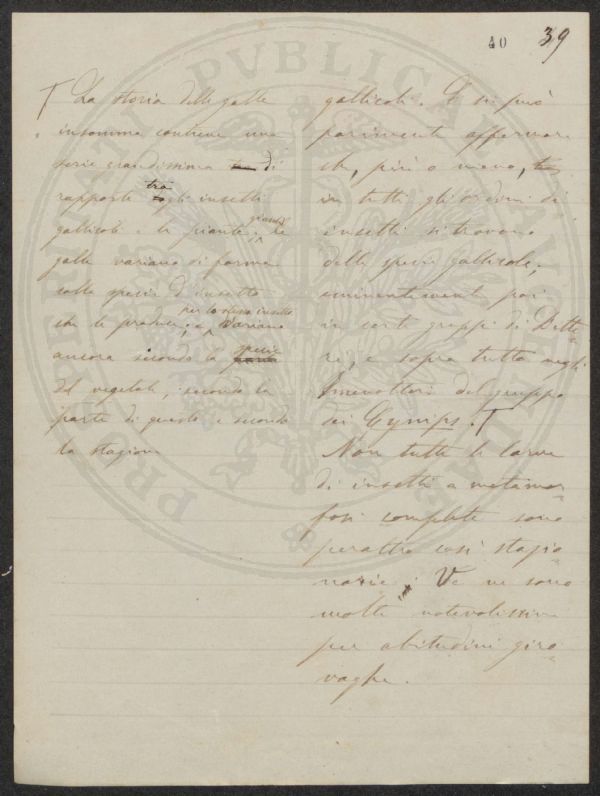 40 39
La storia delle galle
insomma contiene una
serie grandissima di
rapporti tra gli insetti
gallicoli e le piante; le
galle variano di forma
colla specie d'insetto
che le produce, e per lo stesso insetto variano
ancora secondo la specie
del vegetale, secondo la
parte di questo e secondo
la stagione
gallicoli. E si può
parimenti affermare
che, più o meno,
in tutti gli ordini di
insetti si trovano
delle specie gallicole,
eminentemente poi
in certi gruppi di Ditte
ri, e sopra tutto negli
Imenotteri del gruppo
dei Cynips.
Non tutte le larve
di insetti a metamor
fosi complete sono
peraltro così stazio
narie. Ve ne sono
molte notevolissime
per abitudini giro
vaghe.
PRAEFECTI PVBLICAE